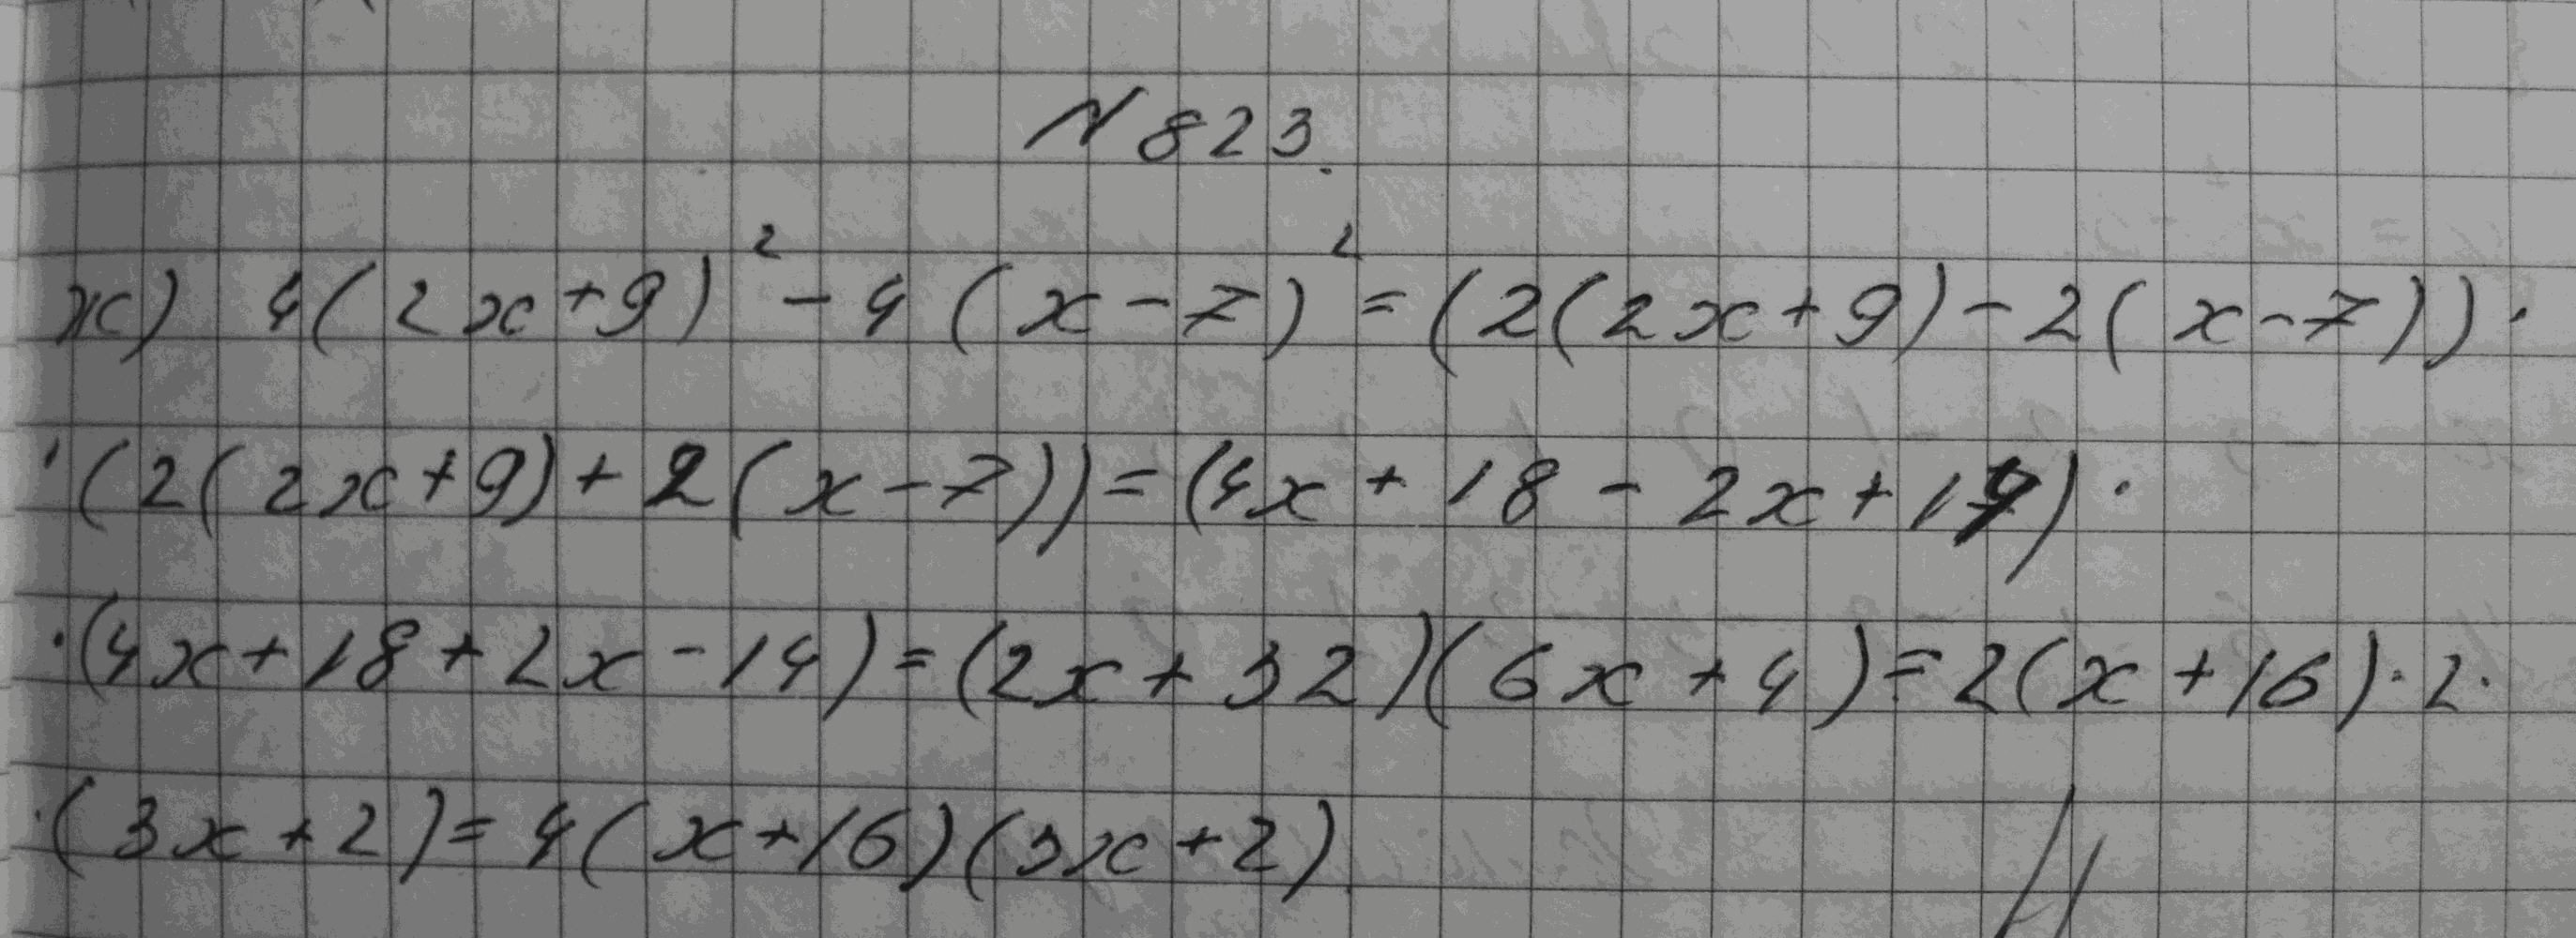 N 823.
ж) 4(2x+9)² - 4(x-7)² = (2(2x+9) - 2(x-7)) ·
· (2(2x+9) + 2(x-7)) = (4x + 18 - 2x + 14) ·
· (4x + 18 + 2x - 14) = (2x + 32)(6x + 4) = 2(x + 16) · 2 ·
· (3x + 2) = 4(x+16)(3x+2)